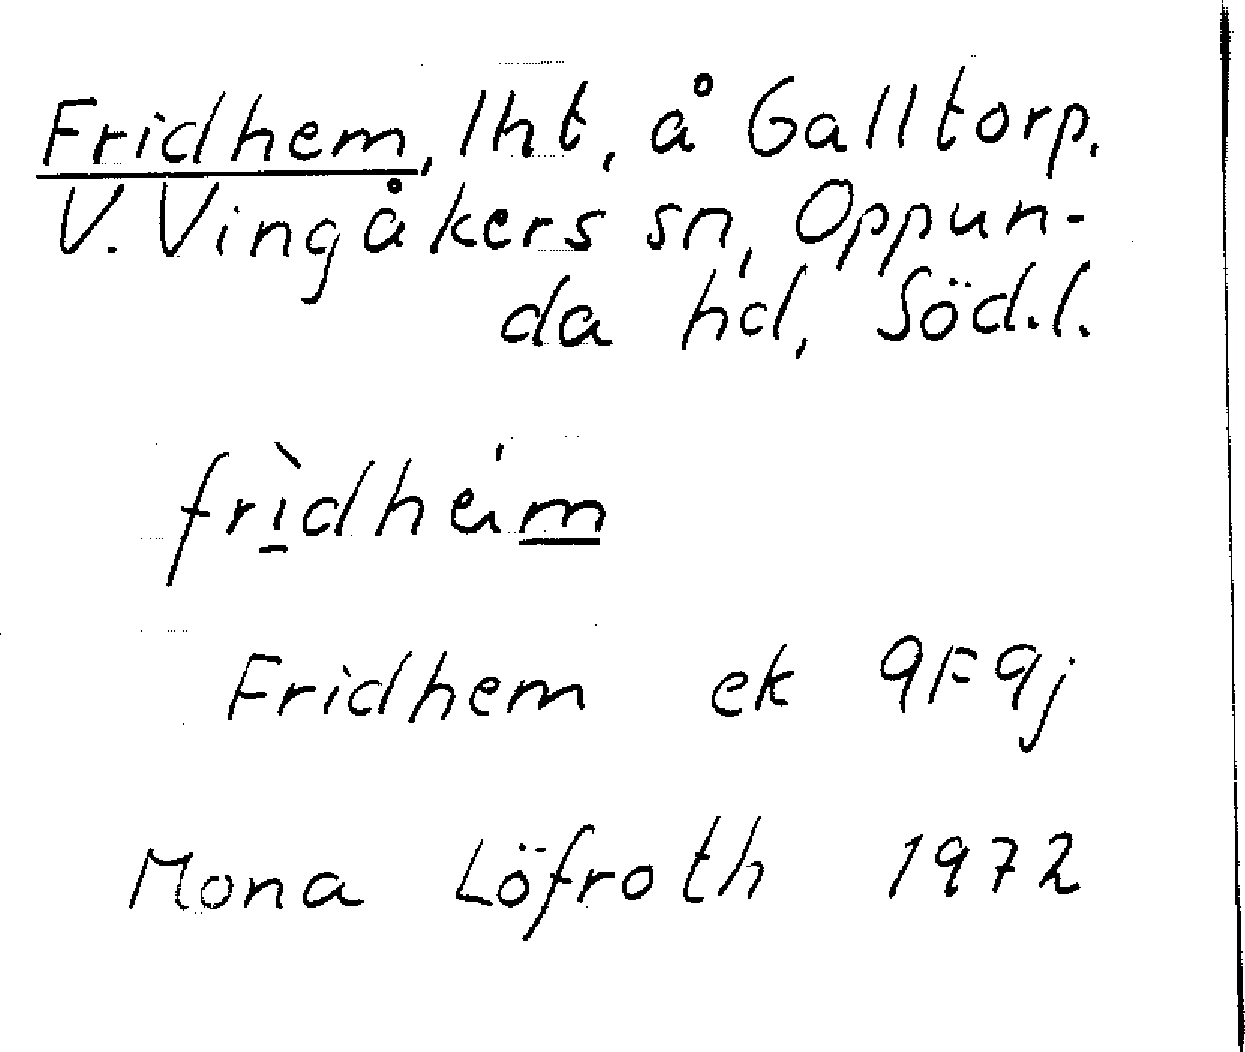 Fridhem, lht, å Galltorp.
V. Vingåkers sn, Oppun-
da hd, Söd.l.
frìdhém
Fridhem ek 9F9j
Mona Löfroth 1972